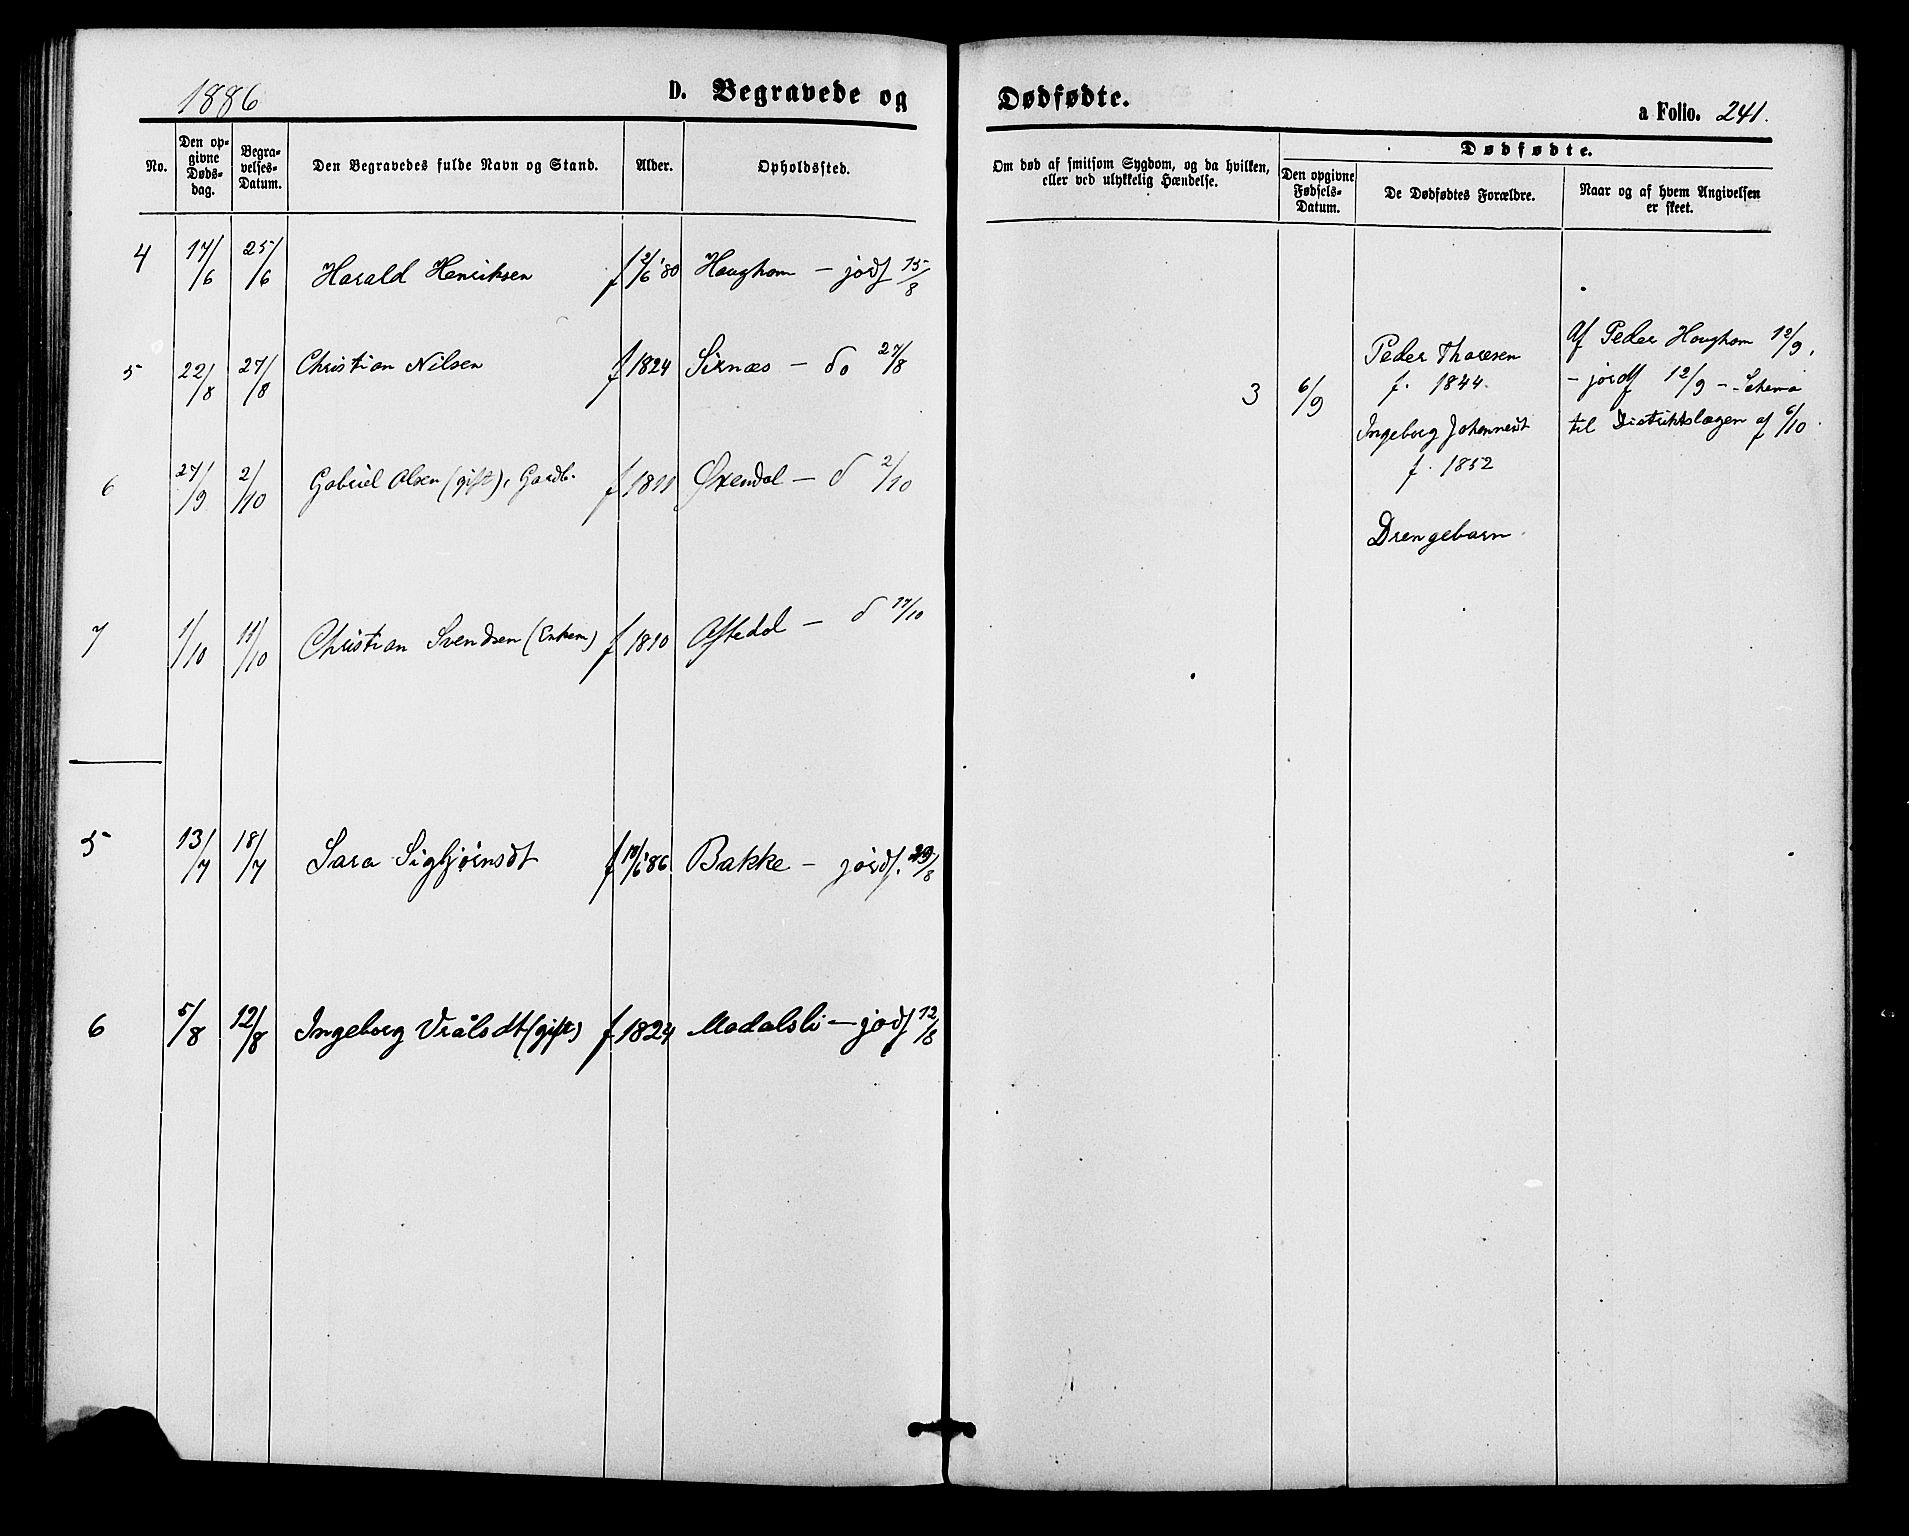 1886 D. Begravede og Dødfødte. a Folio. 241.
No.
Den op-
givne
Døds-
dag.
Begra-
velses-
Datum.
Den Begravedes fulde Navn og Stand.
Alder.
Opholdssted.
Om død af smitsom Sygdom, og da hvilken,
eller ved ulykkelig Hændelse.
Dødfødte.
Den opgivne
Fødsels-
Datum.
De Dødfødtes Forældre.
Naar og af hvem Angivelsen
er skeet.
4 17/6 25/6 Harald Henriksen f 2/6 '80 Haughom – jordf 15/8
5 22/8 27/8 Christian Nilsen f 1824 Sirnæs – do 27/8
6 27/9 2/10 Gabriel Olsen (gift), Gardb. f 1811 Øxendal – d 2/10
7 1/10 11/10 Christian Svendsen (Enkem) f 1810 Aftedal – d 17/10
5 13/7 18/7 Sara Sigbjørnsdt f '86 Bakke – jordf. /8
6 5/8 12/8 Ingeborg Vrålsdt (gift) f 1824 Modalsli – jordf 12/8
3 6/9
Peder Thoresen
f. 1844.
Ingeborg Johannesdt
f. 1852
Drengebarn.
Af Peder Haughom 12/9,
– jordf 12/9 – Schema
til Distriktslægen af 6/10.